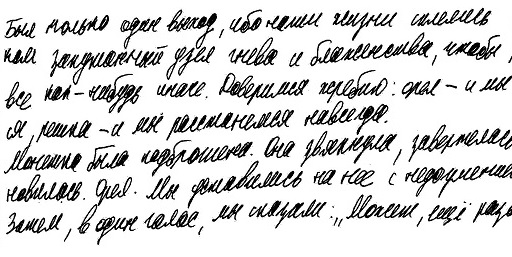 Был только один выход, ибо наши жизни сплелись
запутанный узел гнева и блаженства, чтобы
все как-нибудь иначе. Доверимся жребию: орел – и мы
ся, решка – и мы расстанемся навсегда.
Монетка была подброшена. Она звякнула, завертелас
новилась. Орел. Мы уставились на нее с недоумение
Затем, в один голос, мы сказали: „Может, ещё раз